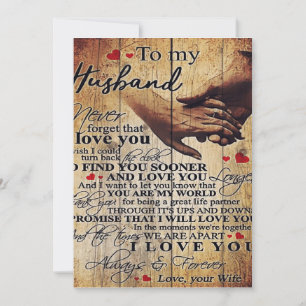 To my
Husband
Never
forget that
I love you
wish I could
turn back the clock
TO FIND YOU SOONER
AND LOVE YOU Longer
And I want to let you know that
YOU ARE MY WORLD
Thank you for being a great life partner
THROUGH IT'S UPS AND DOWNS
PROMISE THAT I WILL LOVE YOU
In the moments we're together
And the times WE ARE APART
I LOVE YOU
Always & Forever
Love, your Wife